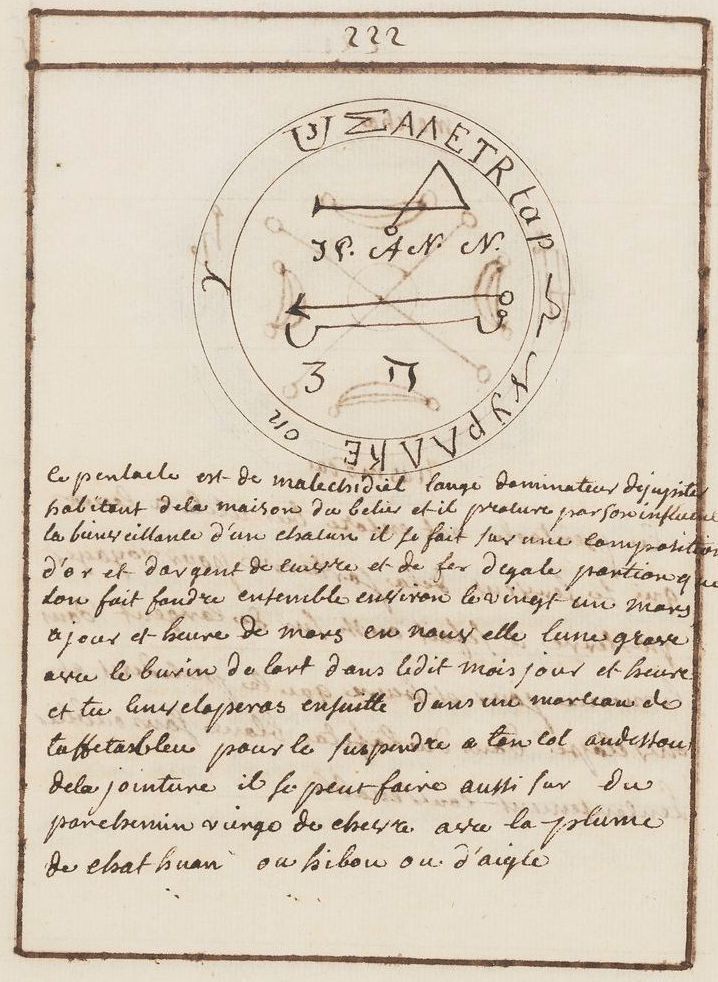 222
ΣΑΛΕΤRιap
JP. AN. N.
3 ה
ce pentacle est de malechidiel lange dominateur de jupiter
habitant dela maison du belier et il procure par son influence
la bienveillance d'un chacun il se fait sur une composition
d'or et d'argent de cuivre et de fer degale portion que
lon fait fondre ensemble environ le vingt un mars
a jour et heure de mars en nouvelle lune grave
avec le burin de lart dans ledit mois jour et heure
et tu lenveloperas ensuitte dans un morceau de
taffetas bleu pour le suspendre a ton col audessous
dela jointure il se peut faire aussi sur du
parchemin vierge de chevre avec la plume
de chat huan ou hibou ou d'aigle